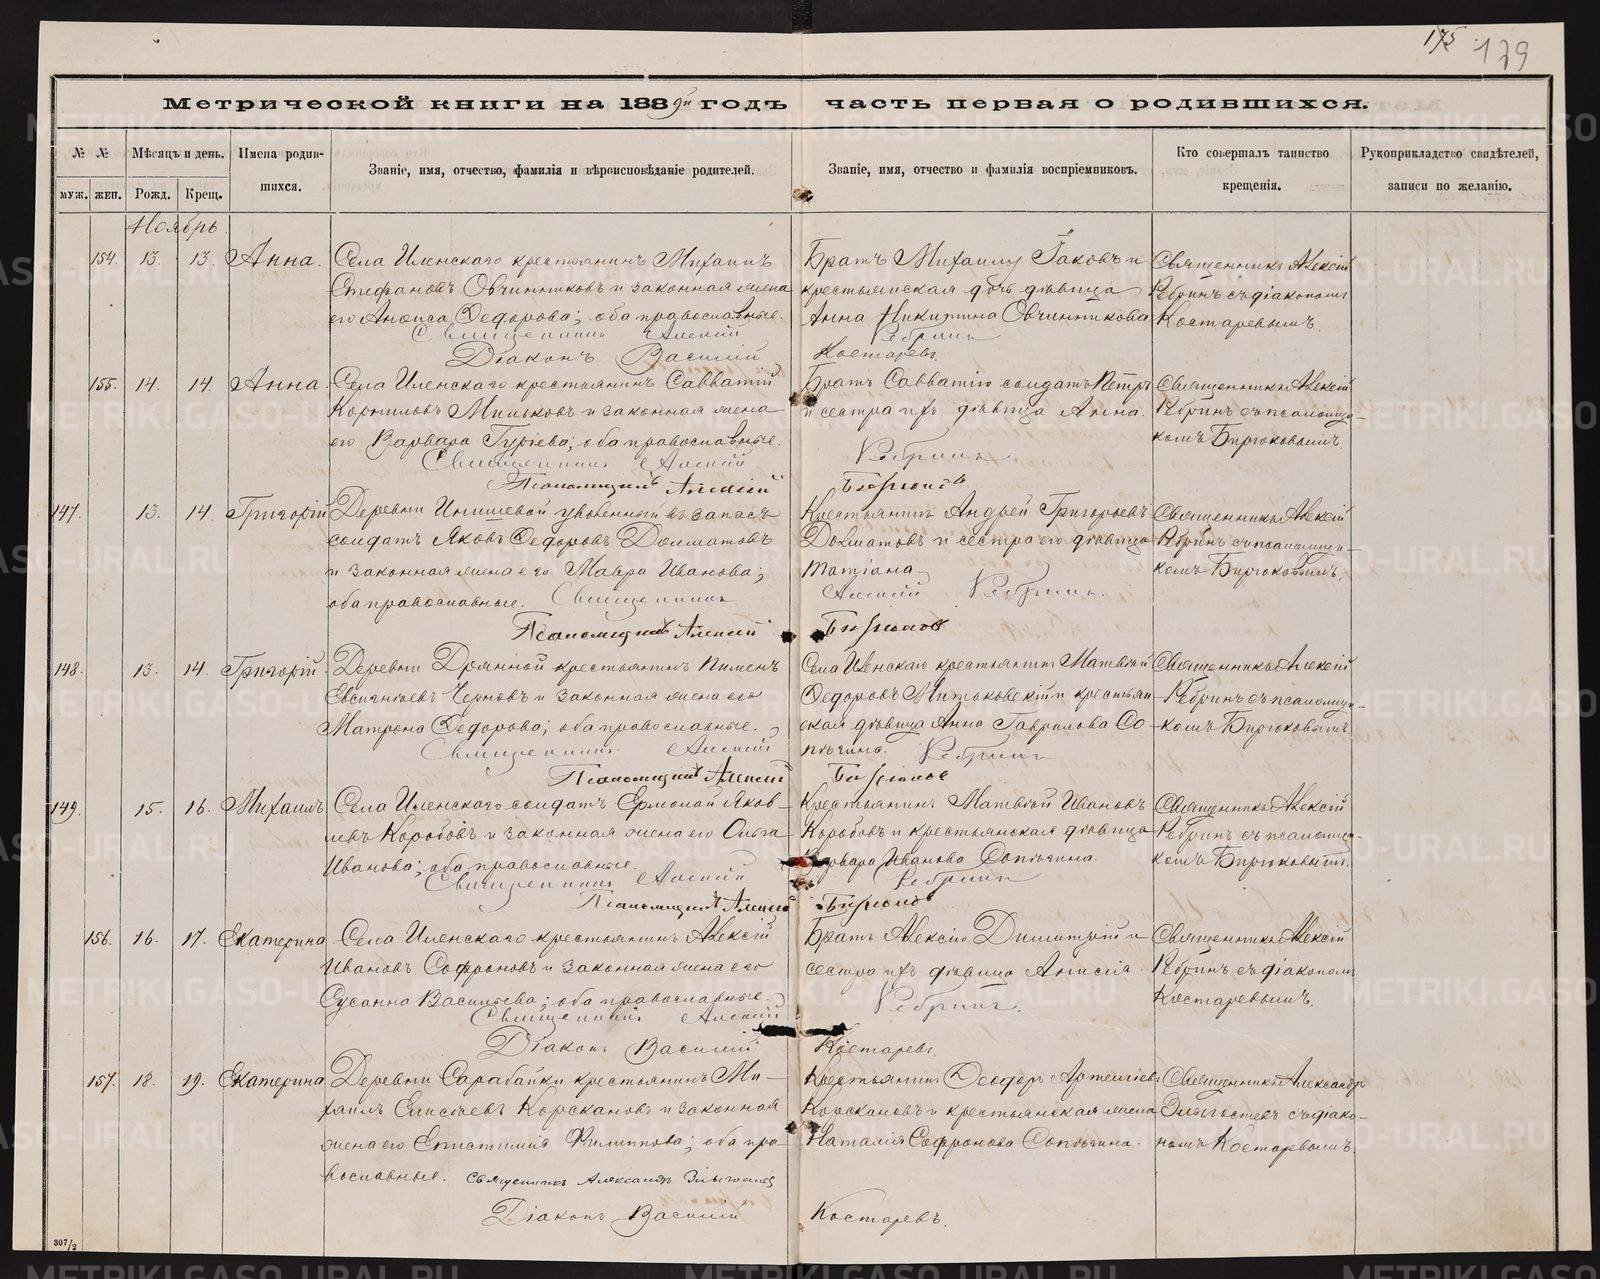 175 179
Метрической книги на 1889й годъ часть первая о родившихся.
№ № Мѣсяцъ и день. Имена родив-шихся. Званіе, имя, отчество, фамилія и вѣроисповѣданіе родителей. Званіе, имя, отчество и фамилія воспріемниковъ. Кто совершалъ таинство крещенія. Рукоприкладство свидѣтелей, записи по желанію.
муж. жен. Рожд. Крещ.
Ноябрь
154. 13. 13. Анна. Села Иленскаго крестьянинъ Михаилъ Братъ Михаилу Іаковъ и Священникъ Алексій
Стефановъ Овчинниковъ и законная жена крестьянская дочь дѣвица Ребринъ съ діакономъ
его Анфиса Ѳедорова; оба православные. Анна Никитина Овчинникова Костаревымъ.
Священникъ Алексій Ребринъ
Діаконъ Василій Костаревъ.
155. 14. 14. Анна. Села Иленскаго крестьянинъ Савватій Братъ Савватію солдатъ Петръ Священникъ Алексій
Корниловъ Мильковъ и законная жена и сестра ихъ дѣвица Анна. Ребринъ съ псаломщи-
его Варвара Гуріева; оба православные. комъ Бирюковымъ.
Священникъ Алексій Ребринъ
Псаломщикъ Алексій Бирюковъ
147. 13. 14. Григорій Деревни уволенный въ запасъ Крестьянинъ Андрей Григорьевъ Священникъ Алексій
солдатъ Яковъ Ѳедоровъ Долматовъ Долматовъ и сестра его дѣвица Ребринъ съ псаломщи-
и законная жена его Мавра Иванова; Татіана. комъ Бирюковымъ.
оба православные. Священникъ Алексій Ребринъ.
Псаломщикъ Алексій Бирюковъ
148. 13. 14. Григорій. Деревни Дрянной крестьянинъ Пименъ Села Иленскаго крестьянинъ Матвѣй Священникъ Алексій
Евсигніевъ Черновъ и законная жена его Ѳедоровъ и крестьян- Ребринъ съ псаломщи-
Матрона Ѳедорова; оба православные. ская дѣвица Анна Гаврилова Со- комъ Бирюковымъ.
пѣчина.
Священникъ Алексій Ребринъ
Псаломщикъ Алексій Бирюковъ
149. 15. 16. Михаилъ Села Иленскаго солдатъ Ермолай Яков- Крестьянинъ Матвѣй Ивановъ Священникъ Алексій
левъ Коробовъ и законная жена его Ольга Коробовъ и крестьянская дѣвица Ребринъ съ псаломщи-
Иванова; оба православные. Варвара Иванова Сопѣчина. комъ Бирюковымъ.
Священникъ Алексій Ребринъ
Псаломщикъ Алексій Бирюковъ
156. 16. 17. Екатерина Села Иленскаго крестьянинъ Алексій Братъ Алексію Димитрій и Священникъ Алексій
Ивановъ Софроновъ и законная жена его сестра ихъ дѣвица Анисія. Ребринъ съ діакономъ
Сусанна Васильева; оба православные. Костаревымъ.
Священникъ Алексій Ребринъ.
Діаконъ Василій Костаревъ.
157. 18. 19. Екатерина Деревни Сарабайки крестьянинъ Ми- Крестьянинъ Ѳеодоръ Артеміевъ Священникъ Александръ
хаилъ Елисѣевъ Корскановъ и законная Корскановъ и крестьянская жена съ діако-
жена его Епистимія Филиппова; оба пра- Наталія Софронова Сопѣчина. номъ Костаревымъ.
вославные. Священникъ Александръ
Діаконъ Василій Костаревъ.
307/2
METRIKI.GASO-URAL.RU